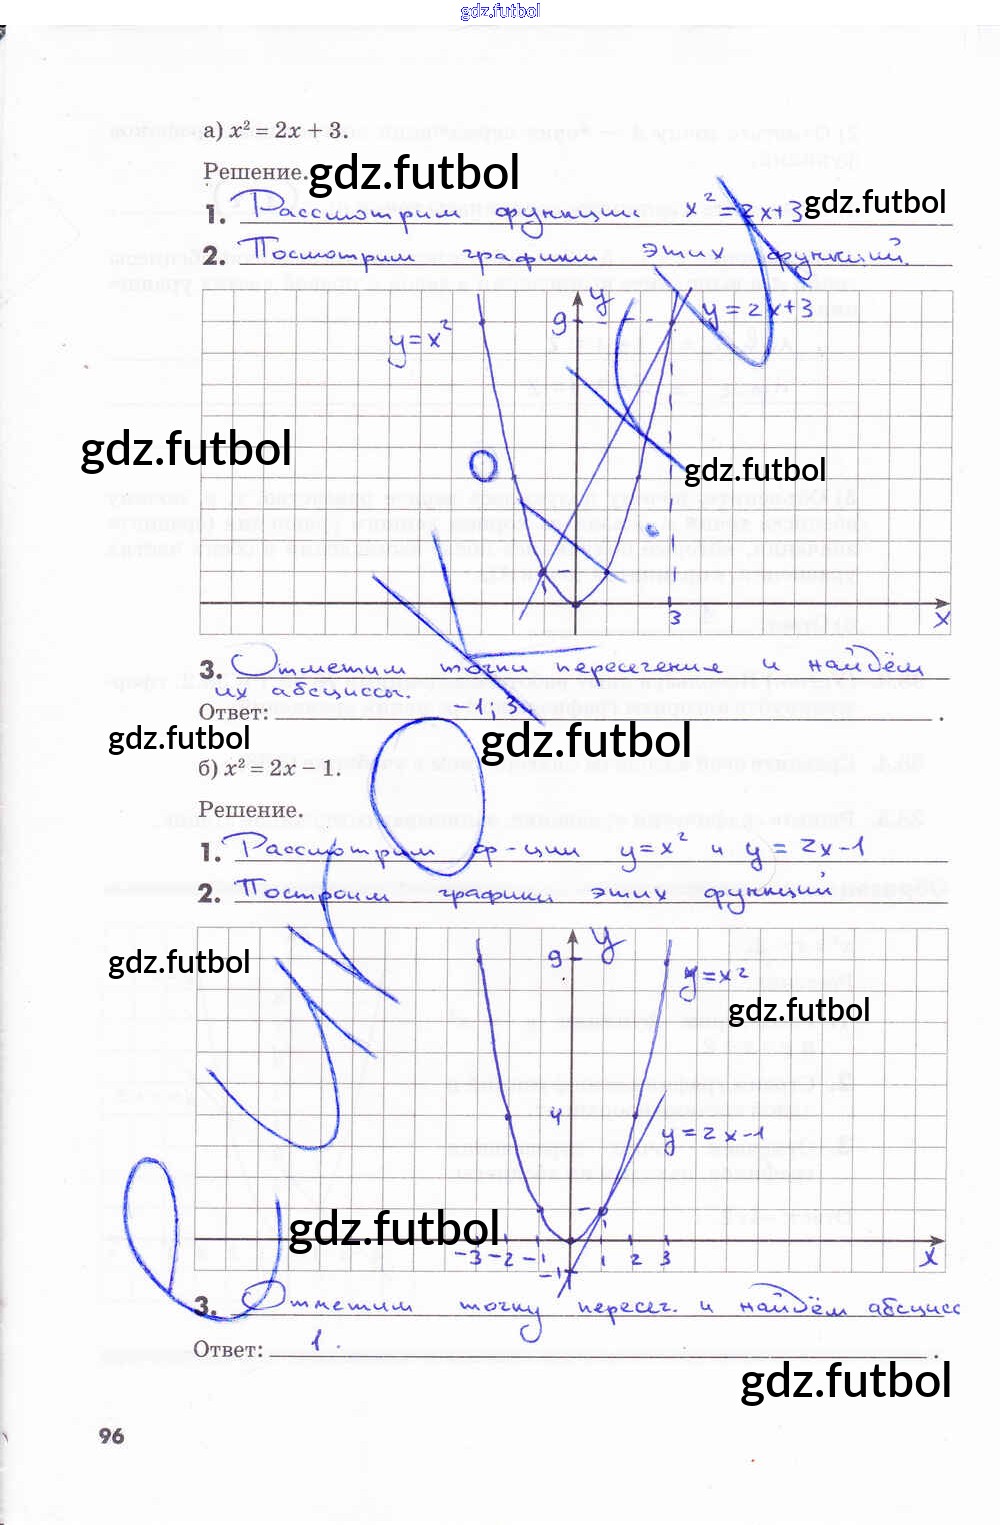 gdz.futbol
а) x² = 2x + 3.
Решение.
gdz.futbol
1. Рассмотрим функции x² = 2x+3
gdz.futbol
2. Посмотрим графики этих функций.
y = x²
9
y
y = 2x+3
gdz.futbol
gdz.futbol
3
x
3. Отметим точки пересечения и найдём
их абсциссы.
Ответ: -1; 3.
gdz.futbol
gdz.futbol
б) x² = 2x − 1.
Решение.
1. Рассмотрим ф-ции y = x² и y = 2x-1
2. Построим графики этих функций
gdz.futbol
9
y
y = x²
gdz.futbol
4
y = 2x-1
gdz.futbol
-3 -2 -1 1 2 3
x
-1
3. Отметим точку пересег. и найдём абсцисс
Ответ: 1.
gdz.futbol
96